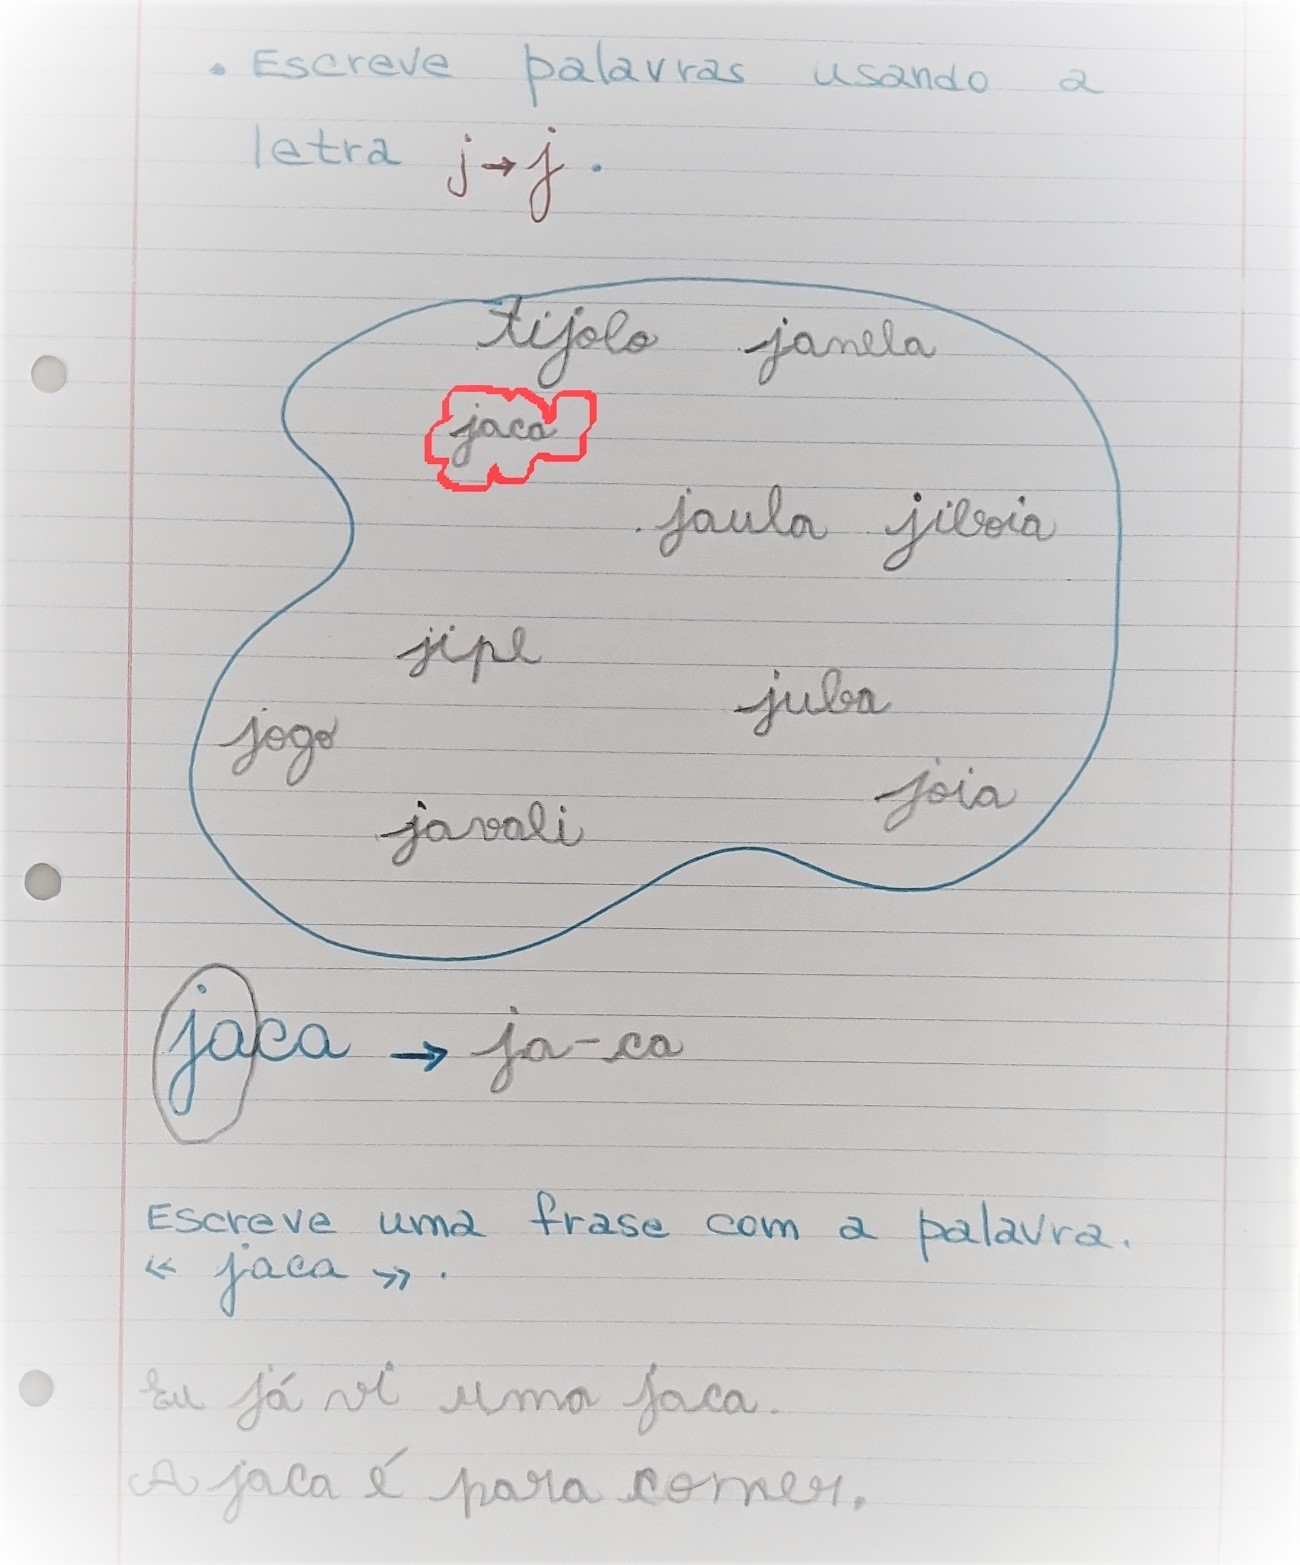 • Escreve palavras usando a
letra j → j.
tijolo janela
jaca
jaula jiboia
jipe
juba
jogo
joia
javali
jaca → ja-ca
Escreve uma frase com a palavra.
« jaca ».
Eu já vi uma jaca.
A jaca é para comer.